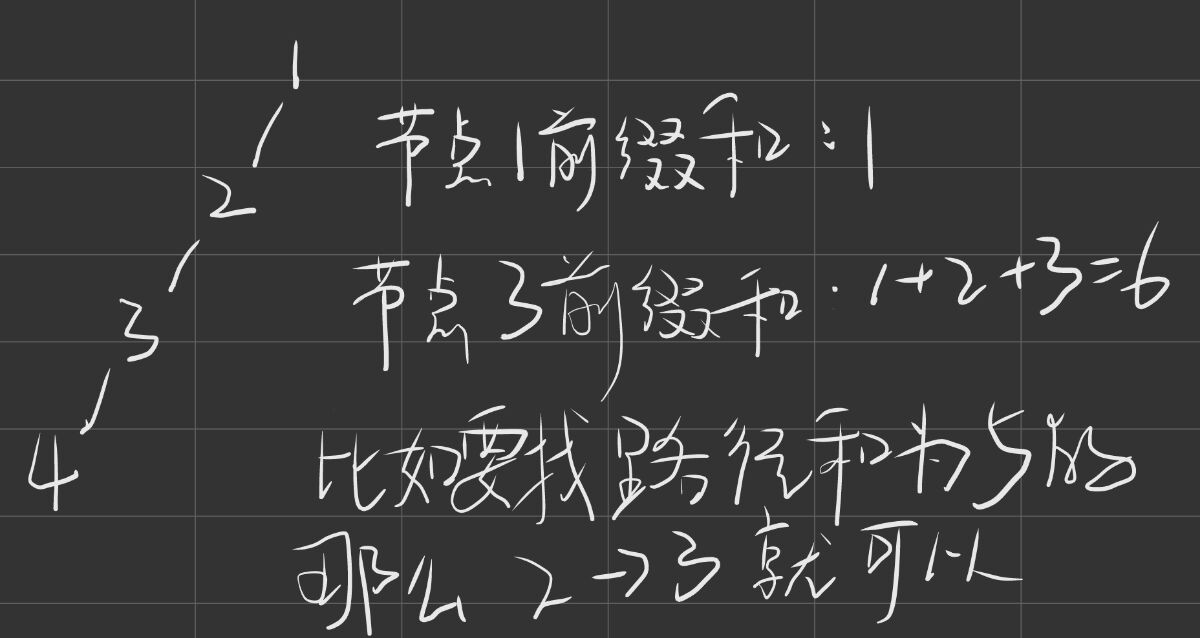 1
节点1前缀和:1
2
节点3前缀和:1+2+3=6
3
4
比如要找路径和为5的
那么 2→3就可以